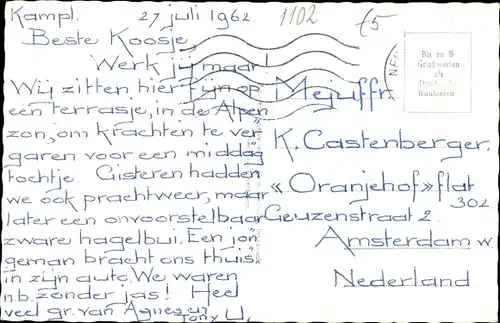 Kampl. 27 juli 1962. 1102 £5
Beste Koosje
Werk jij maar!
Wij zitten hier fijn op
een terrasje, in de Alpen
zon, om krachten te ver
garen voor een middag
tochtje. Gisteren hadden
we ook prachtweer, maar
later een onvoorstelbaar
zware hagelbui. Een jon
geman bracht ons thuis
in zijn auto. We waren
n.b. zonder jas! Heel
veel gr. van Agnes en
Tony U.
Mejuffr.
K. Castenberger.
« Oranjehof » flat
302
Geuzenstraat 2.
Amsterdam w.
Nederland
Bis zu 5
Grußworten
als
frankieren